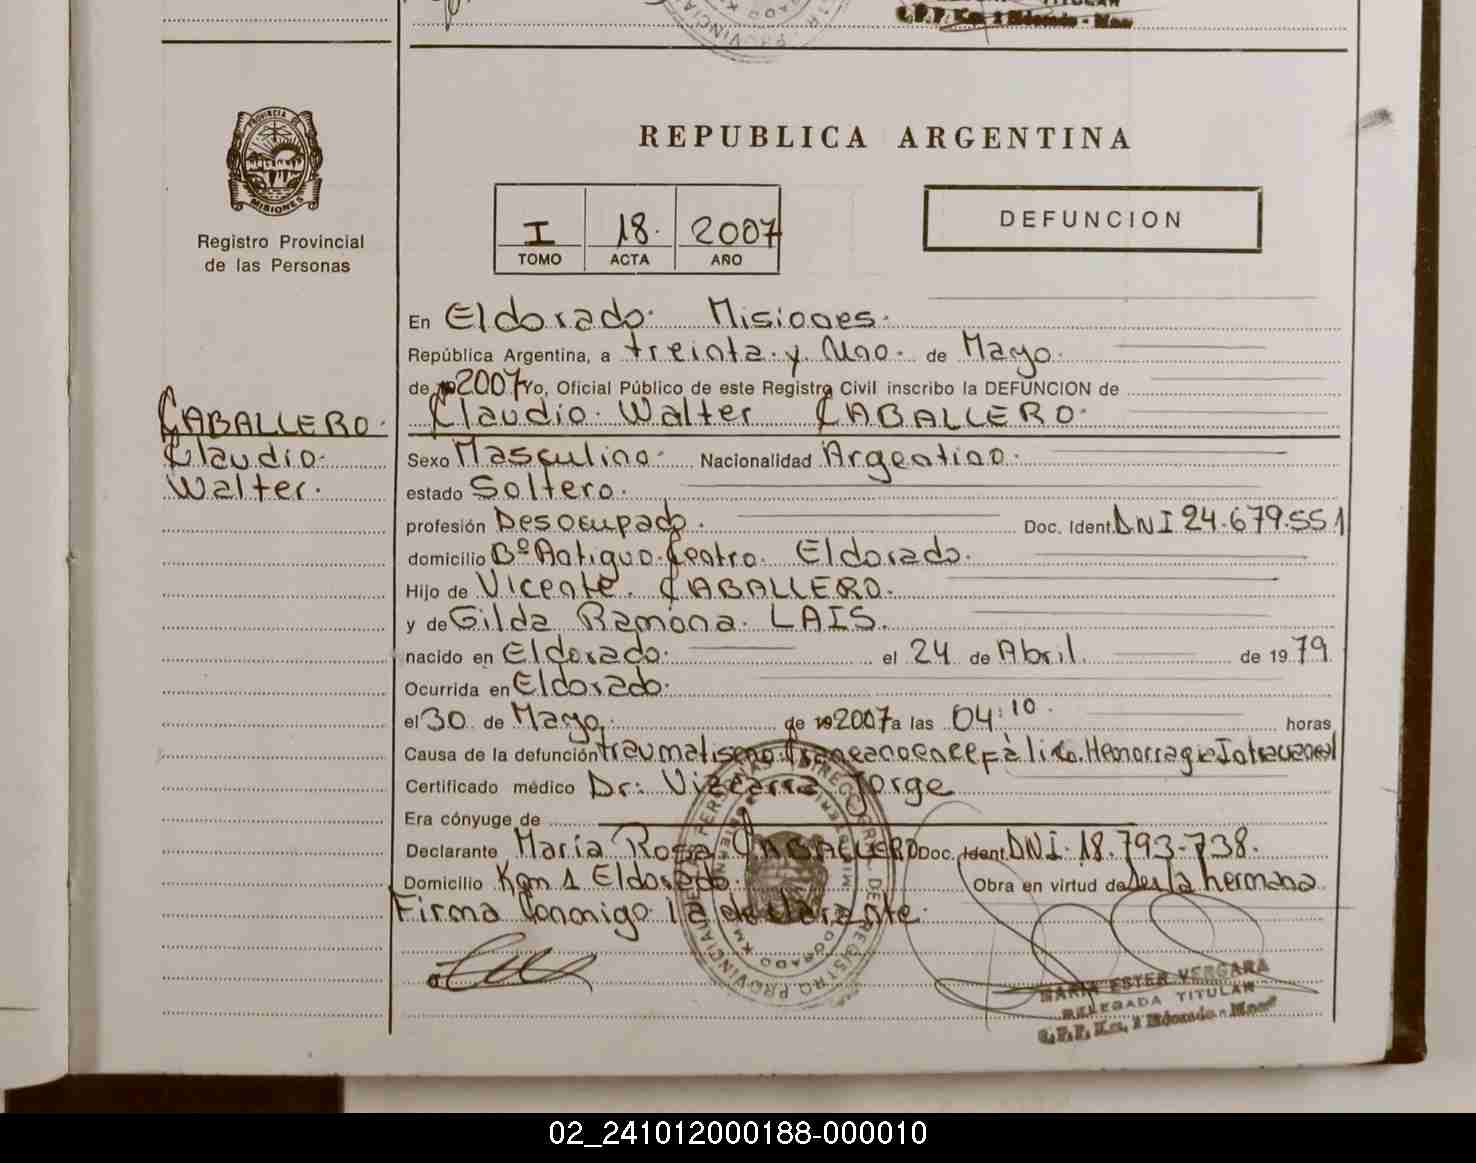 TITULAR
PROVINCIA DE
MISIONES
Registro Provincial
de las Personas
REPUBLICA ARGENTINA
I 18. 2007
TOMO ACTA AÑO
DEFUNCION
En Eldorado. Misiones.
República Argentina, a treinta y Uno. de Mayo.
de 2007 Yo, Oficial Público de este Registro Civil inscribo la DEFUNCION de
CABALLERO.
Claudio.
Walter.
Claudio. Walter CABALLERO.
Sexo Masculino. Nacionalidad Argentino.
estado Soltero.
profesión Desocupado. Doc. Ident. DNI 24.679.551
domicilio Bº Antiguo Centro. Eldorado.
Hijo de Vicente. CABALLERO.
y de Gilda Ramona. LAIS.
nacido en Eldorado. el 24 de Abril. de 1979
Ocurrida en Eldorado.
el 30 de Mayo. de 192007 a las 04:10. horas
Causa de la defunción traumatismo Craneanoencefàlico. Hemorragia Intracraneal
Certificado médico Dr: Vizcarra Jorge
Era cónyuge de
Declarante María Rosa CABALLERO Doc. Ident. DNI. 18.793-738.
Domicilio Km 1 Eldorado. Obra en virtud de Ser la hermana
Firma Conmigo la declarante.
MARIA ESTER VERGARA
DELEGADA TITULAR
02_241012000188-000010